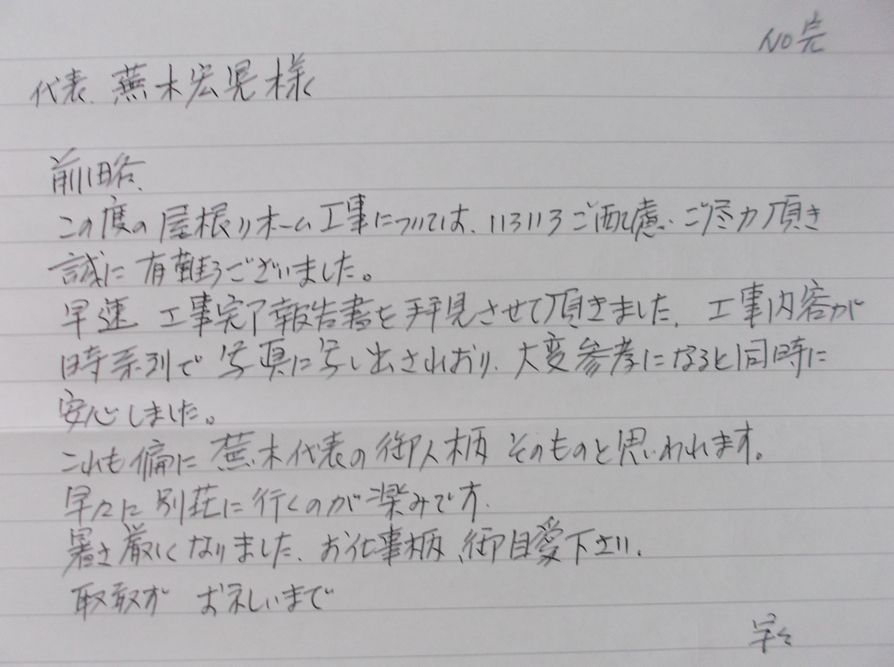 NO完
代表 蕪木宏晃様
前略、
この度の屋根リホーム工事については、いろいろご配慮、ご尽力頂き
誠に有難うございました。
早速 工事完了報告書を拝見させて頂きました、工事内容が
時系列で写真に写し出されおり、大変参考になると同時に
安心しました。
これも偏に蕪木代表の御人柄そのものと思いわれます。
早々に別荘に行くのが楽みです.
暑さ厳しくなりました、お仕事柄、御自愛下さい.
取敢ず お礼いまで
早々